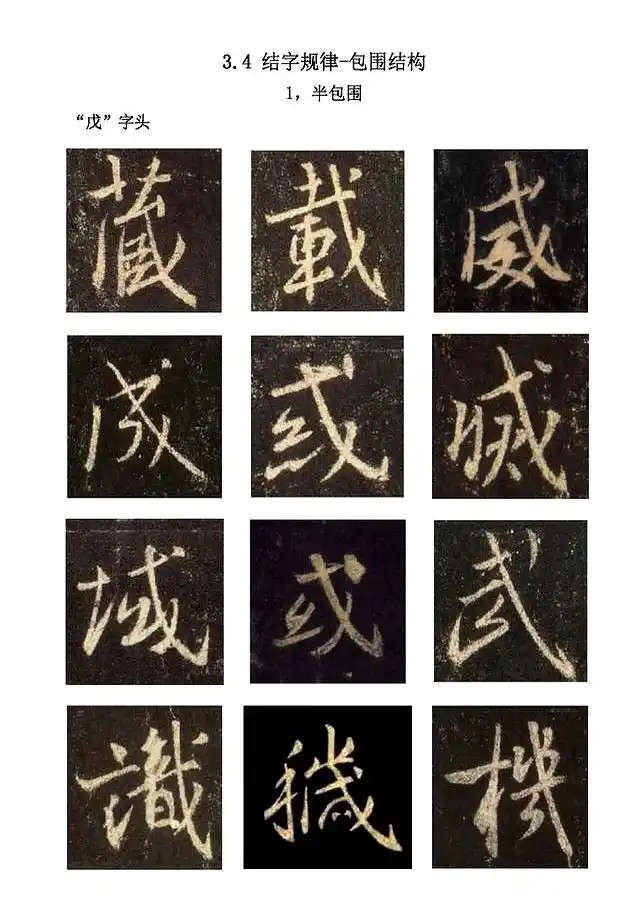 3.4 结字规律-包围结构
1，半包围
“戊”字头
藏 載 威
成 滅
域 或 武
識 穢 機